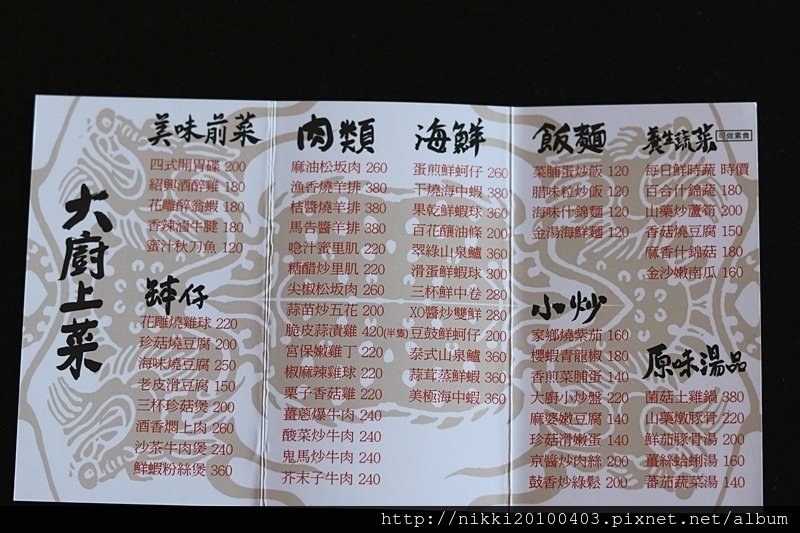 大廚上菜
美味前菜
四式開胃碟 200
紹興酒醉雞 180
花雕醉翁蝦 180
香辣滷牛腱 180
蜜汁秋刀魚 120
缽仔
花雕燒雞球 220
珍菇燒豆腐 200
海味燒豆腐 250
老皮滑豆腐 150
三杯珍菇煲 200
酒香燜上肉 260
沙茶牛肉煲 240
鮮蝦粉絲煲 360
肉類
麻油松坂肉 260
漁香燒羊排 380
桔醬燒羊排 380
馬告醬羊排 380
嗆汁蜜里肌 220
糖醋炒里肌 220
尖椒松坂肉 260
蒜苗炒五花 200
脆皮蒜漬雞 420(半隻)
宮保嫩雞丁 220
椒麻辣雞球 220
栗子香菇雞 220
薑蔥爆牛肉 240
酸菜炒牛肉 240
鬼馬炒牛肉 240
芥末子牛肉 240
海鮮
蛋煎鮮蚵仔 260
干燒海中蝦 380
果乾鮮蝦球 360
百花釀油條 200
翠綠山泉鱸 360
滑蛋鮮蝦球 300
三杯鮮中卷 280
XO醬炒雙鮮 280
豆鼓鮮蚵仔 200
泰式山泉鱸 360
蒜茸蒸鮮蝦 360
美極海中蝦 360
飯麵
菜脯蛋炒飯 120
腊味粒炒飯 120
海味什錦麵 120
金湯海鮮麵 120
小炒
家鄉燒紫茄 160
櫻蝦青龍椒 180
香煎菜脯蛋 140
大廚小炒盤 220
麻婆嫩豆腐 140
珍菇滑嫩蛋 140
京醬炒肉絲 200
鼓香炒綠鬆 200
養生蔬菜 可做素食
每日鮮時蔬 時價
百合什錦蔬 180
山藥炒蘆筍 200
香菇燒豆腐 150
麻香什錦菇 180
金沙嫩南瓜 160
原味湯品
菌菇土雞鍋 380
山藥燉豚骨 220
鮮茄豚骨湯 200
薑絲蛤蜊湯 160
蕃茄蔬菜湯 140
http://nikki20100403.pixnet.net/album